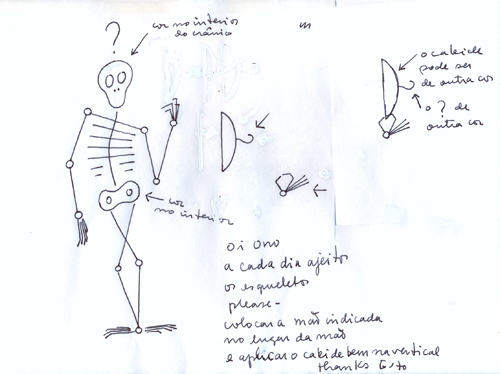 ?
cor no interior
do crânio
m
o cabide
pode ser
de outra cor
o ? de
outra cor
cor
no interior
oi ono
a cada dia ajeitos
os esqueletos
please-
colocar a mão indicada
no lugar da mão
e aplicar o cabide bem na vertical
thanks